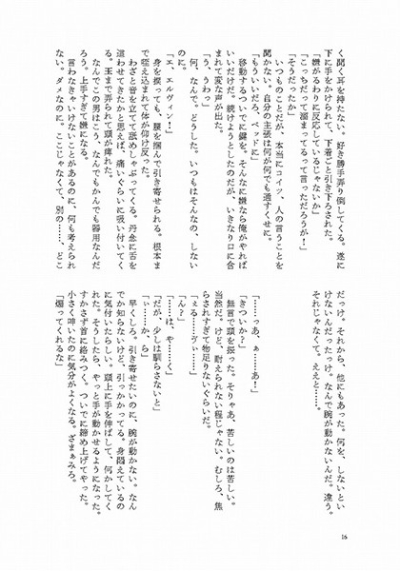 く聞く耳を持たない。好き勝手弄り倒してくる。遂に
下に手をかけられて、下着ごと引き下ろされた。
「嫌がるわりに反応しているじゃないか」
「こっちだって溜まってるって言っただろうが！」
「そうだったか」
いつものことだが、本当にコイツ、人の言うことを
聞かない。自分の主張は何が何でも通すくせに。
「もういいだろ、ベッドに」
移動するついでに鍵を。そんなに嫌なら俺がやれば
いいだけだ。続けようとしたのだが、いきなり口に含
まれて変な声が出た。
「う、うわっ」
何、なんで、どうした。いつもはそんなの、しない
のに。
「エ、エルヴィン！」
身を捩っても、腰を掴んで引き寄せられる。根本ま
で咥え込まれて体が仰け反った。
わざと音を立てて舐めしゃぶってくる。丹念に舌を
這わせてきたかと思えば、痛いぐらいに吸い付いてく
る。玉まで弄られて頭が痺れた。
なんでこの男はこう、なんでもかんでも器用なんだ
ろう。上手すぎて嫌になる。
言わなきゃいけないことがあるのに、何も考えられ
ない。ダメなのに。ここじゃなくて、別の……、どこ
だっけ。それから、他にもあった。何を、しないとい
けないんだったっけ。なんで腕が動かないんだ。違う。
それじゃなくて。ええと……。
「……っあ、ぁ――あ！」
「きついか？」
無言で頭を振った。そりゃあ、苦しいのは苦しい。
当然だ。けど、耐えられない程じゃない。むしろ、焦
らされすぎて物足りないぐらいだ。
「ぇる……ヴぃ……」
「ん？」
「……は、や……く」
「だが、少しは馴らさないと」
「ぃ……か、ら」
早くしろ。引き寄せたいのに、腕が動かない。なん
でか知らないけど、引っかかってる。身悶えているの
に気付いたらしい。頭上に手を伸ばして、何かしてく
れた。そうしたら、やっと手が動かせるようになった。
すかさず首に絡みつく。ついでに締め上げてやった。
小さく呻いたのに気分がよくなる。ざまぁみろ。
「煽ってくれるな」
16